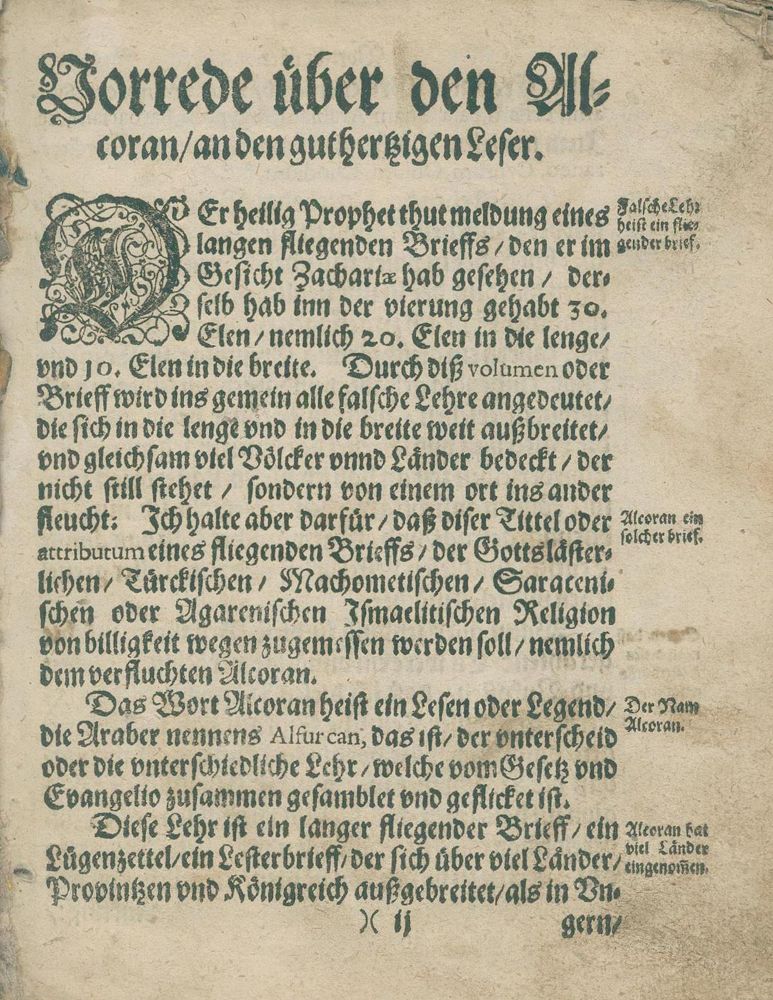 Vorrede über den Al-
coran/an den guthertzigen Leser.
DEr heilig Prophet thut meldung eines
langen fliegenden Brieffs/den er im
Gesicht Zachariæ hab gesehen/ der-
selb hab inn der vierung gehabt 30.
Elen/nemlich 20. Elen in die lenge/
vnd 10. Elen in die breite. Durch diß volumen oder
Brieff wird ins gemein alle falsche Lehre angedeutet/
die sich in die lenge vnd in die breite weit außbreitet/
vnd gleichsam viel Völcker vnnd Länder bedeckt/der
nicht still stehet/ sondern von einem ort ins ander
fleucht: Ich halte aber darfür/daß diser Tittel oder
attributum eines fliegenden Brieffs/der Gottsläster-
lichen/Türckischen/Machometischen/Saraceni-
schen oder Agarenischen Ismaelitischen Religion
von billigkeit wegen zugemessen werden soll/nemlich
dem verfluchten Alcoran.
Das Wort Alcoran heist ein Lesen oder Legend/
die Araber nennens Alfurcan, das ist/der vnterscheid
oder die vnterschiedliche Lehr/welche vom Gesetz vnd
Evangelio zusammen gesamblet vnd geflicket ist.
Diese Lehr ist ein langer fliegender Brieff/ein
Lügenzettel/ein Lesterbrieff/der sich über viel Länder/
Provintzen vnd Königreich außgebreitet/als in Vn-
)( ij
gern/
Falsche Lehr
heist ein flie-
gender brief.
Alcoran ein
solcher brief.
Der Nam
Alcoran.
Alcoran hat
viel Länder
eingenom̃en.